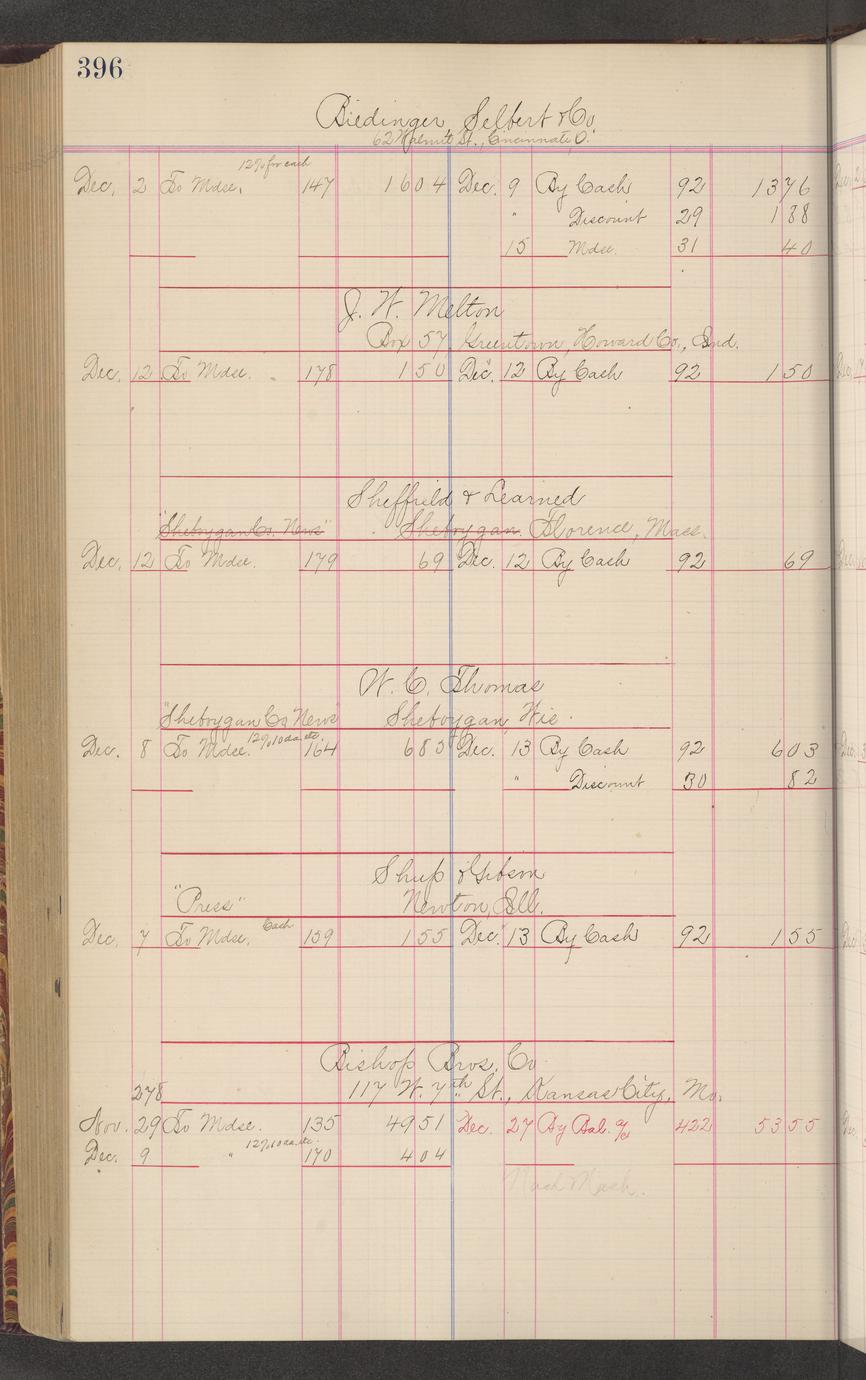 396
Biedinger, Selbert & Co.
62 Walnut St., Cincinnati, O.
12% for cash
Dec. 2 To Mdse. 147 16 04 Dec. 9 By Cash 92 13 76
" Discount 29 1 88
15 Mdse. 31 40
J. W. Melton
Box 57, Greentown, Howard Co., Ind.
Dec. 12 To Mdse. 178 1 50 Dec. 12 By Cash 92 1 50
Sheffield & Learned
"Sheboygan Co. News" Sheboygan Florence, Mass.
Dec. 12 To Mdse. 179 69 Dec. 12 By Cash 92 69
W. C. Thomas
"Sheboygan Co News" Sheboygan, Wis.
12% 10 da. etc.
Dec. 8 To Mdse. 164 6 85 Dec. 13 By Cash 92 6 03
" Discount 30 82
Shup & Gibson
"Press" Newton, Ill.
Cash
Dec. 7 To Mdse. 159 1 55 Dec. 13 By Cash 92 1 55
Bishop Bros. Co
278 117 W. 7th St., Kansas City, Mo.
Nov. 29 To Mdse. 135 49 51 Dec. 27 By Bal. a/c 422 53 55
12% 10 da. etc.
Dec. 9 " 170 4 04